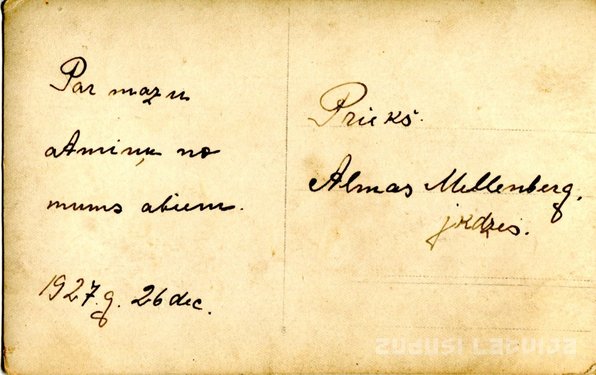 Par mazu
atmiņu no
mums abiem.
1927.g. 26 dec.
Priekš.
Almas Mellenberg.
jkdzes.
zudusi Latvija